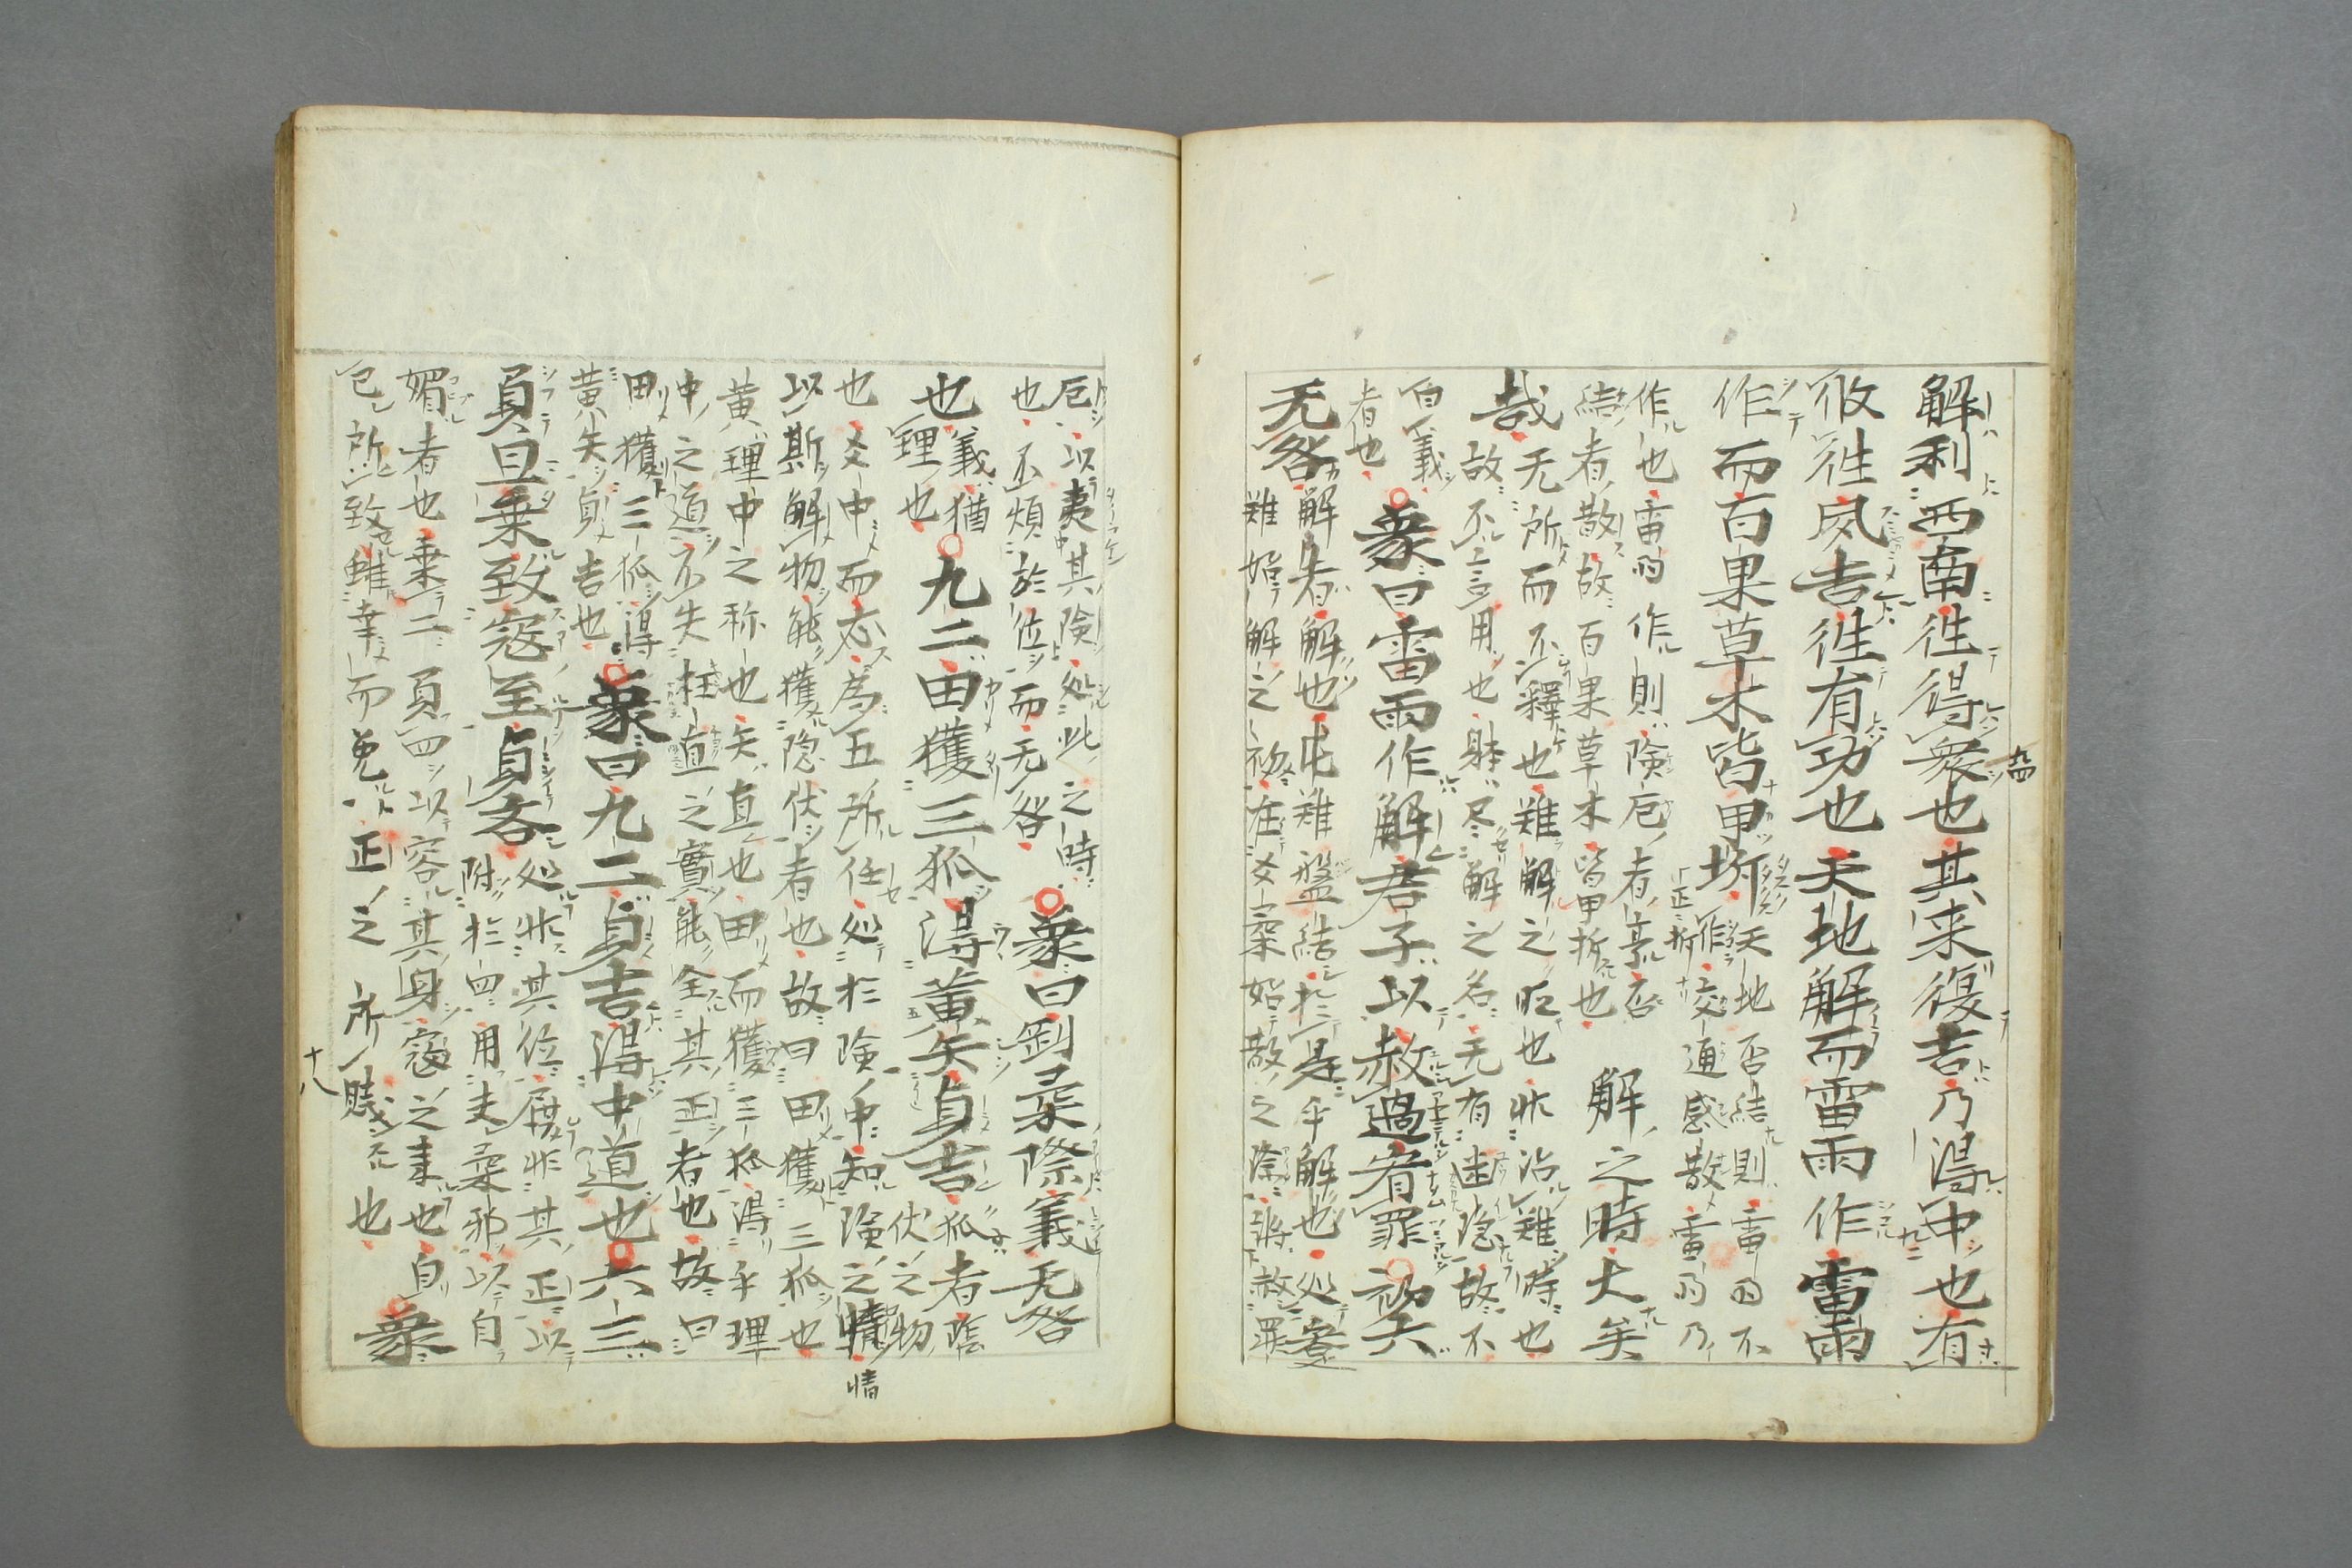 解利西南徃得衆也其来復吉乃得中也有
攸徃夙吉徃有功也天地解而雷雨作雷雨
作而百果草木皆甲坼天地否結則雷雨不
作交通感散雷雨乃
作也雷雨作則険厄者亨否
結者散故百果草木皆甲拆也
解之時大矣
哉无所而不釋也難解之時也非治難時也
故不言用也躰尽解之名无有幽隠故不
自義
者也
彖曰雷雨作解君子以赦過宥罪初六
无咎解者解也屯難盤結於是乎解也処蹇
難始解之初在爻柔始散之際将赦罪
厄以夷其険処此之時
也不煩於位而无咎
象曰剛柔際義无咎
也義猶
理也
九二田獲三狐得黄矢貞吉狐者隠
伏之物
也爻中而応為五所任処於険中知険之情
以斯解物能獲隠伏者也故曰田獲三狐也
黄理中之称也矢直也田而獲三狐得乎理
中之道不失枉直之實能全其正者也故曰
田獲三狐得
黄矢貞吉也
象曰九二貞吉得中道也六三
負且乗致寇至貞吝処非其位履非其正以
附於四用夫柔邪以自
媚者也乗二負四以容其身寇之来也自
己所致雖幸而免正之所賎也
象
情
十八